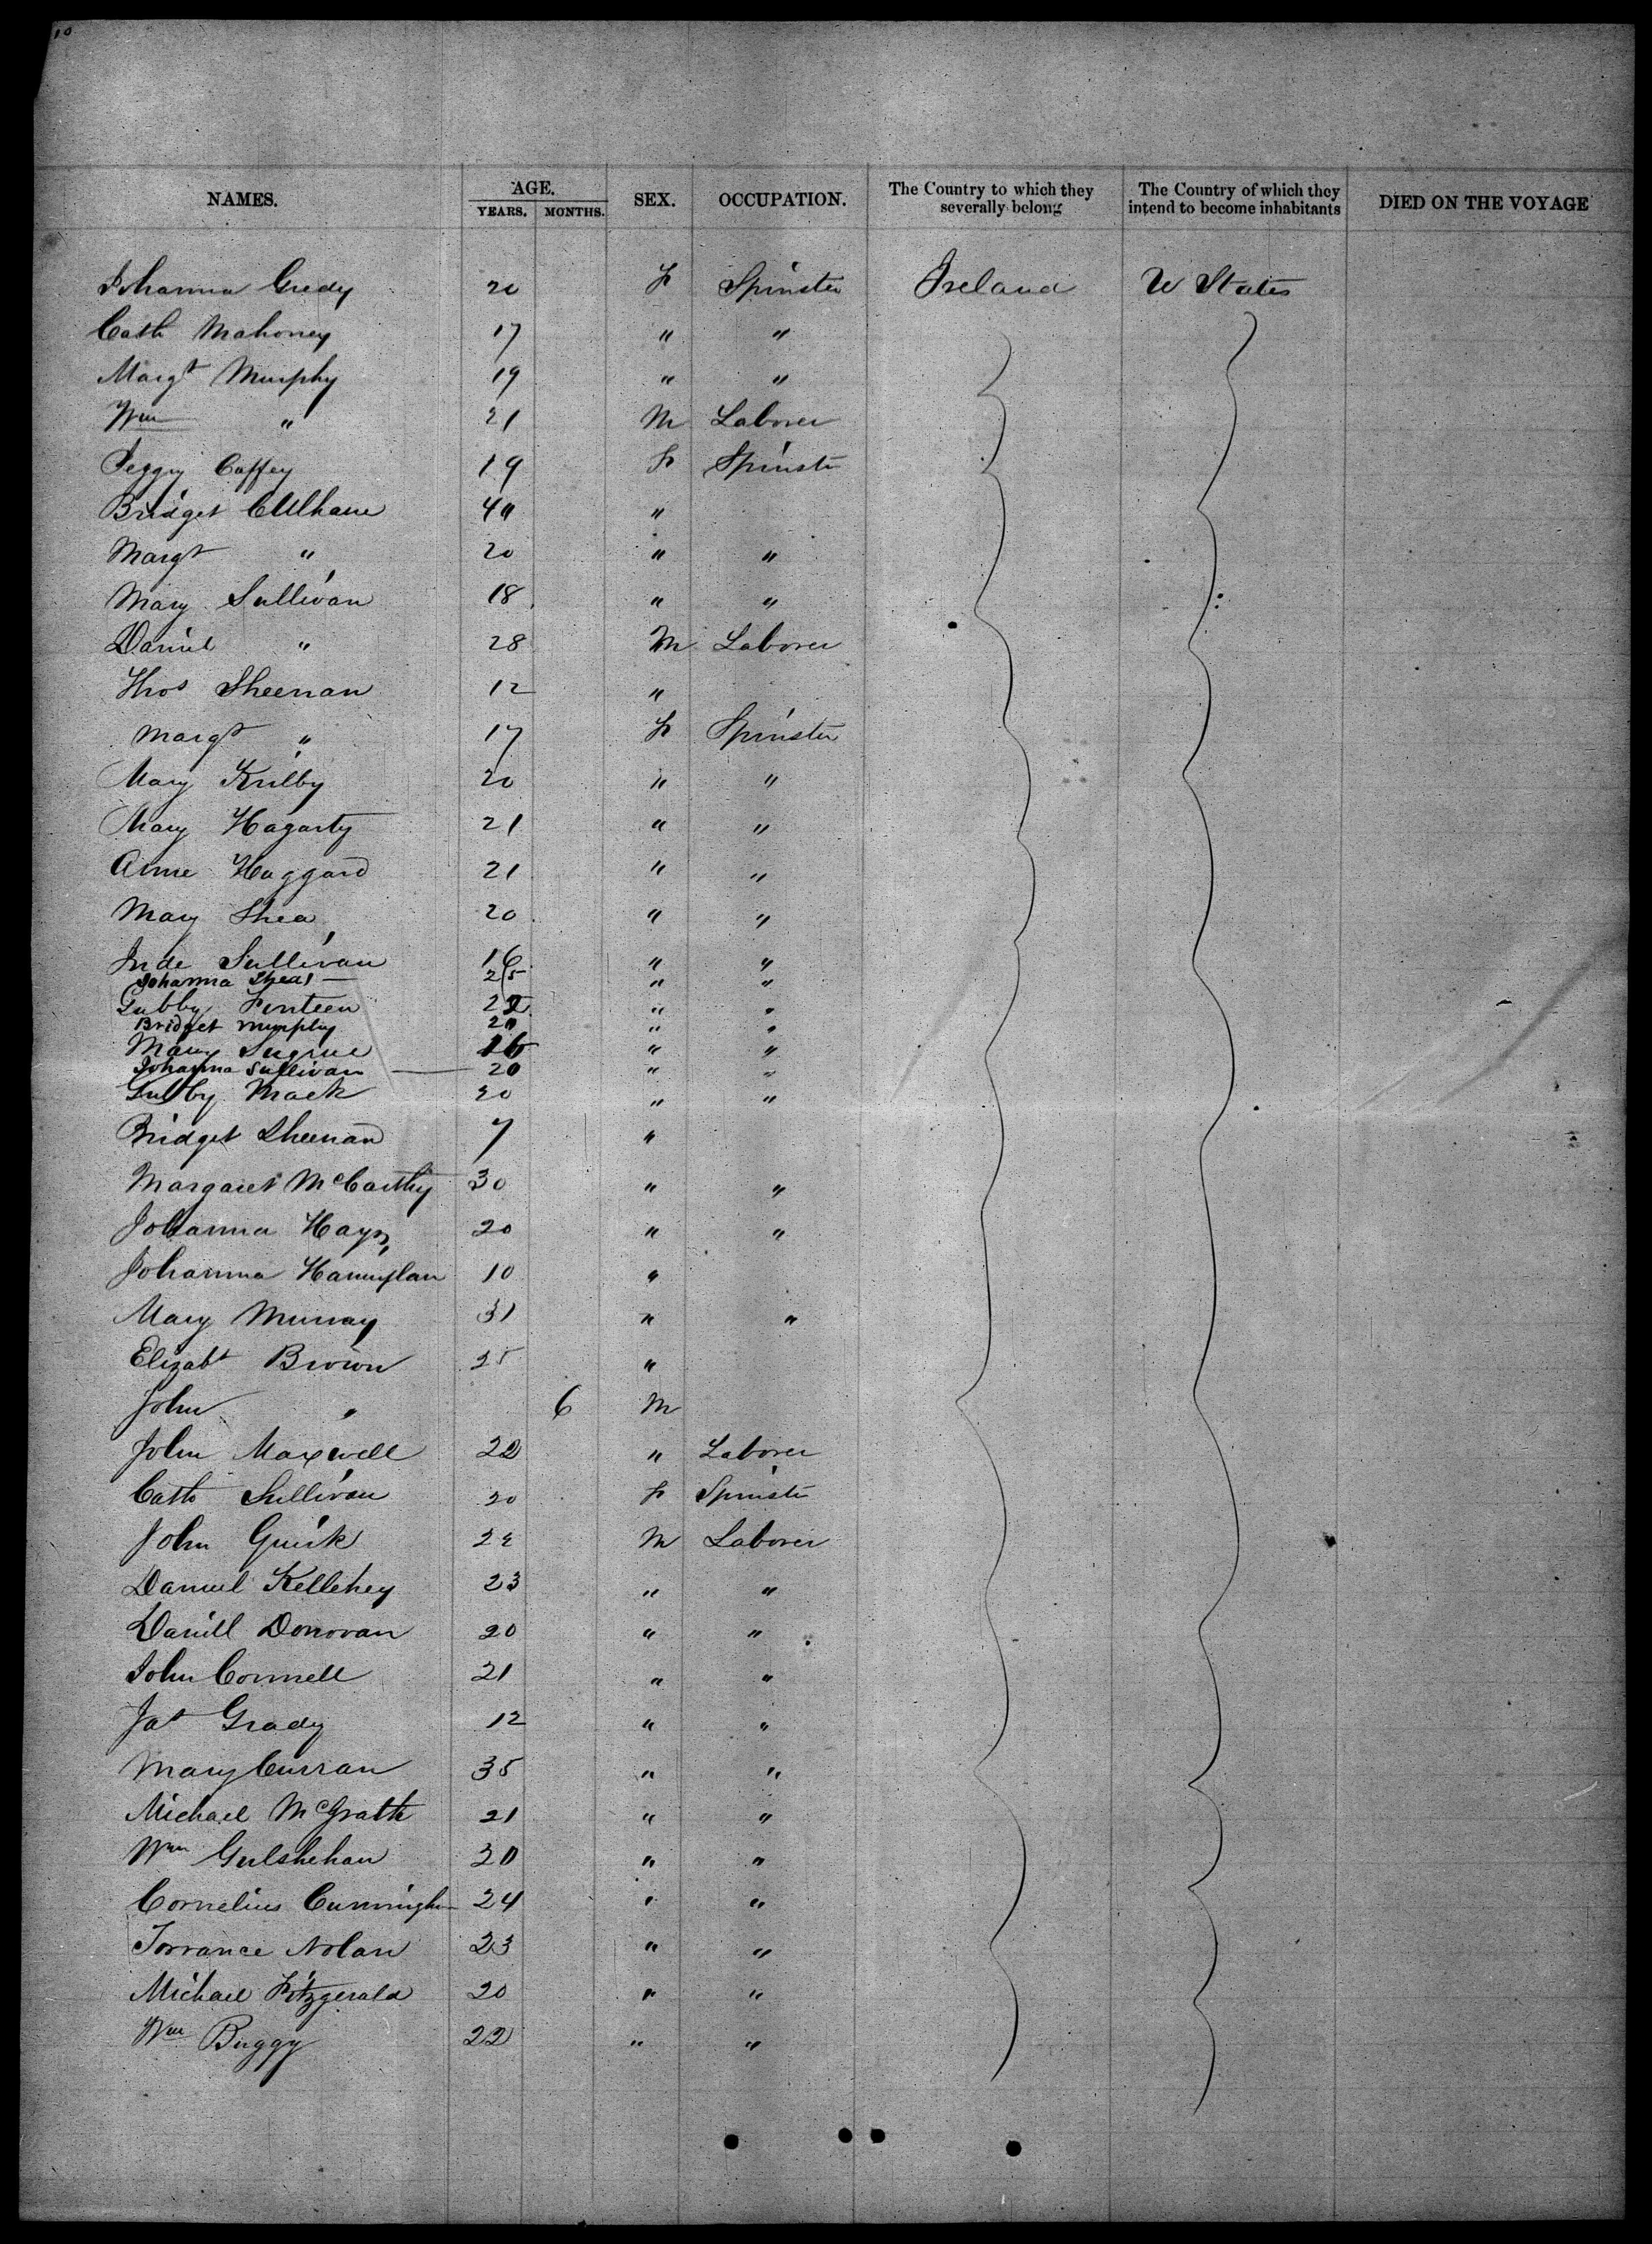 10
NAMES. AGE. YEARS. MONTHS. SEX. OCCUPATION. The Country to which they severally belong The Country of which they intend to become inhabitants DIED ON THE VOYAGE
Johanna Gredy 20 F Spinster Ireland U States
Cath Mahoney 17 " "
Margt Murphy 19 " "
Wm " 21 M Laborer
Peggy Caffey 19 F Spinster
Bridget Culhane 40 "
Margt " 20 " "
Mary Sullivan 18 " "
Daniel " 28 M Laborer
Thos Sheenan 12 "
Margt " 17 F Spinster
Mary Kielby 20 " "
Mary Hagarty 21 " "
Anne Haggard 21 " "
Mary Shea 20 " "
Jude Sullivan 16 " "
Johanna Shea 25 " "
Gubby Finteen 22 " "
Bridget Murphy 20 " "
Mary Sugrue 16 " "
Johanna Sullivan 20 " "
Gubby Mack 20 " "
Bridget Sheenan 7 "
Margaret McCarthy 30 " "
Johanna Hays 20 " "
Johanna 10 "
Mary Murray 31 " "
Elizabt Brown 25 "
John " 6 M
John Maxwell 22 " Laborer
Cath Sullivan 20 F Spinster
John Quirk 22 M Laborer
Daniel Kellehey 23 " "
Daniel Donovan 20 " "
John Connell 21 " "
Pat Grady 12 " "
Mary Curran 35 " "
Michael McGrath 21 " "
Wm Gulshehan 30 " "
Cornelius Cunningham 24 " "
Torrance Nolan 23 " "
Michael Fitzgerald 20 " "
Wm Buggy 22 " "